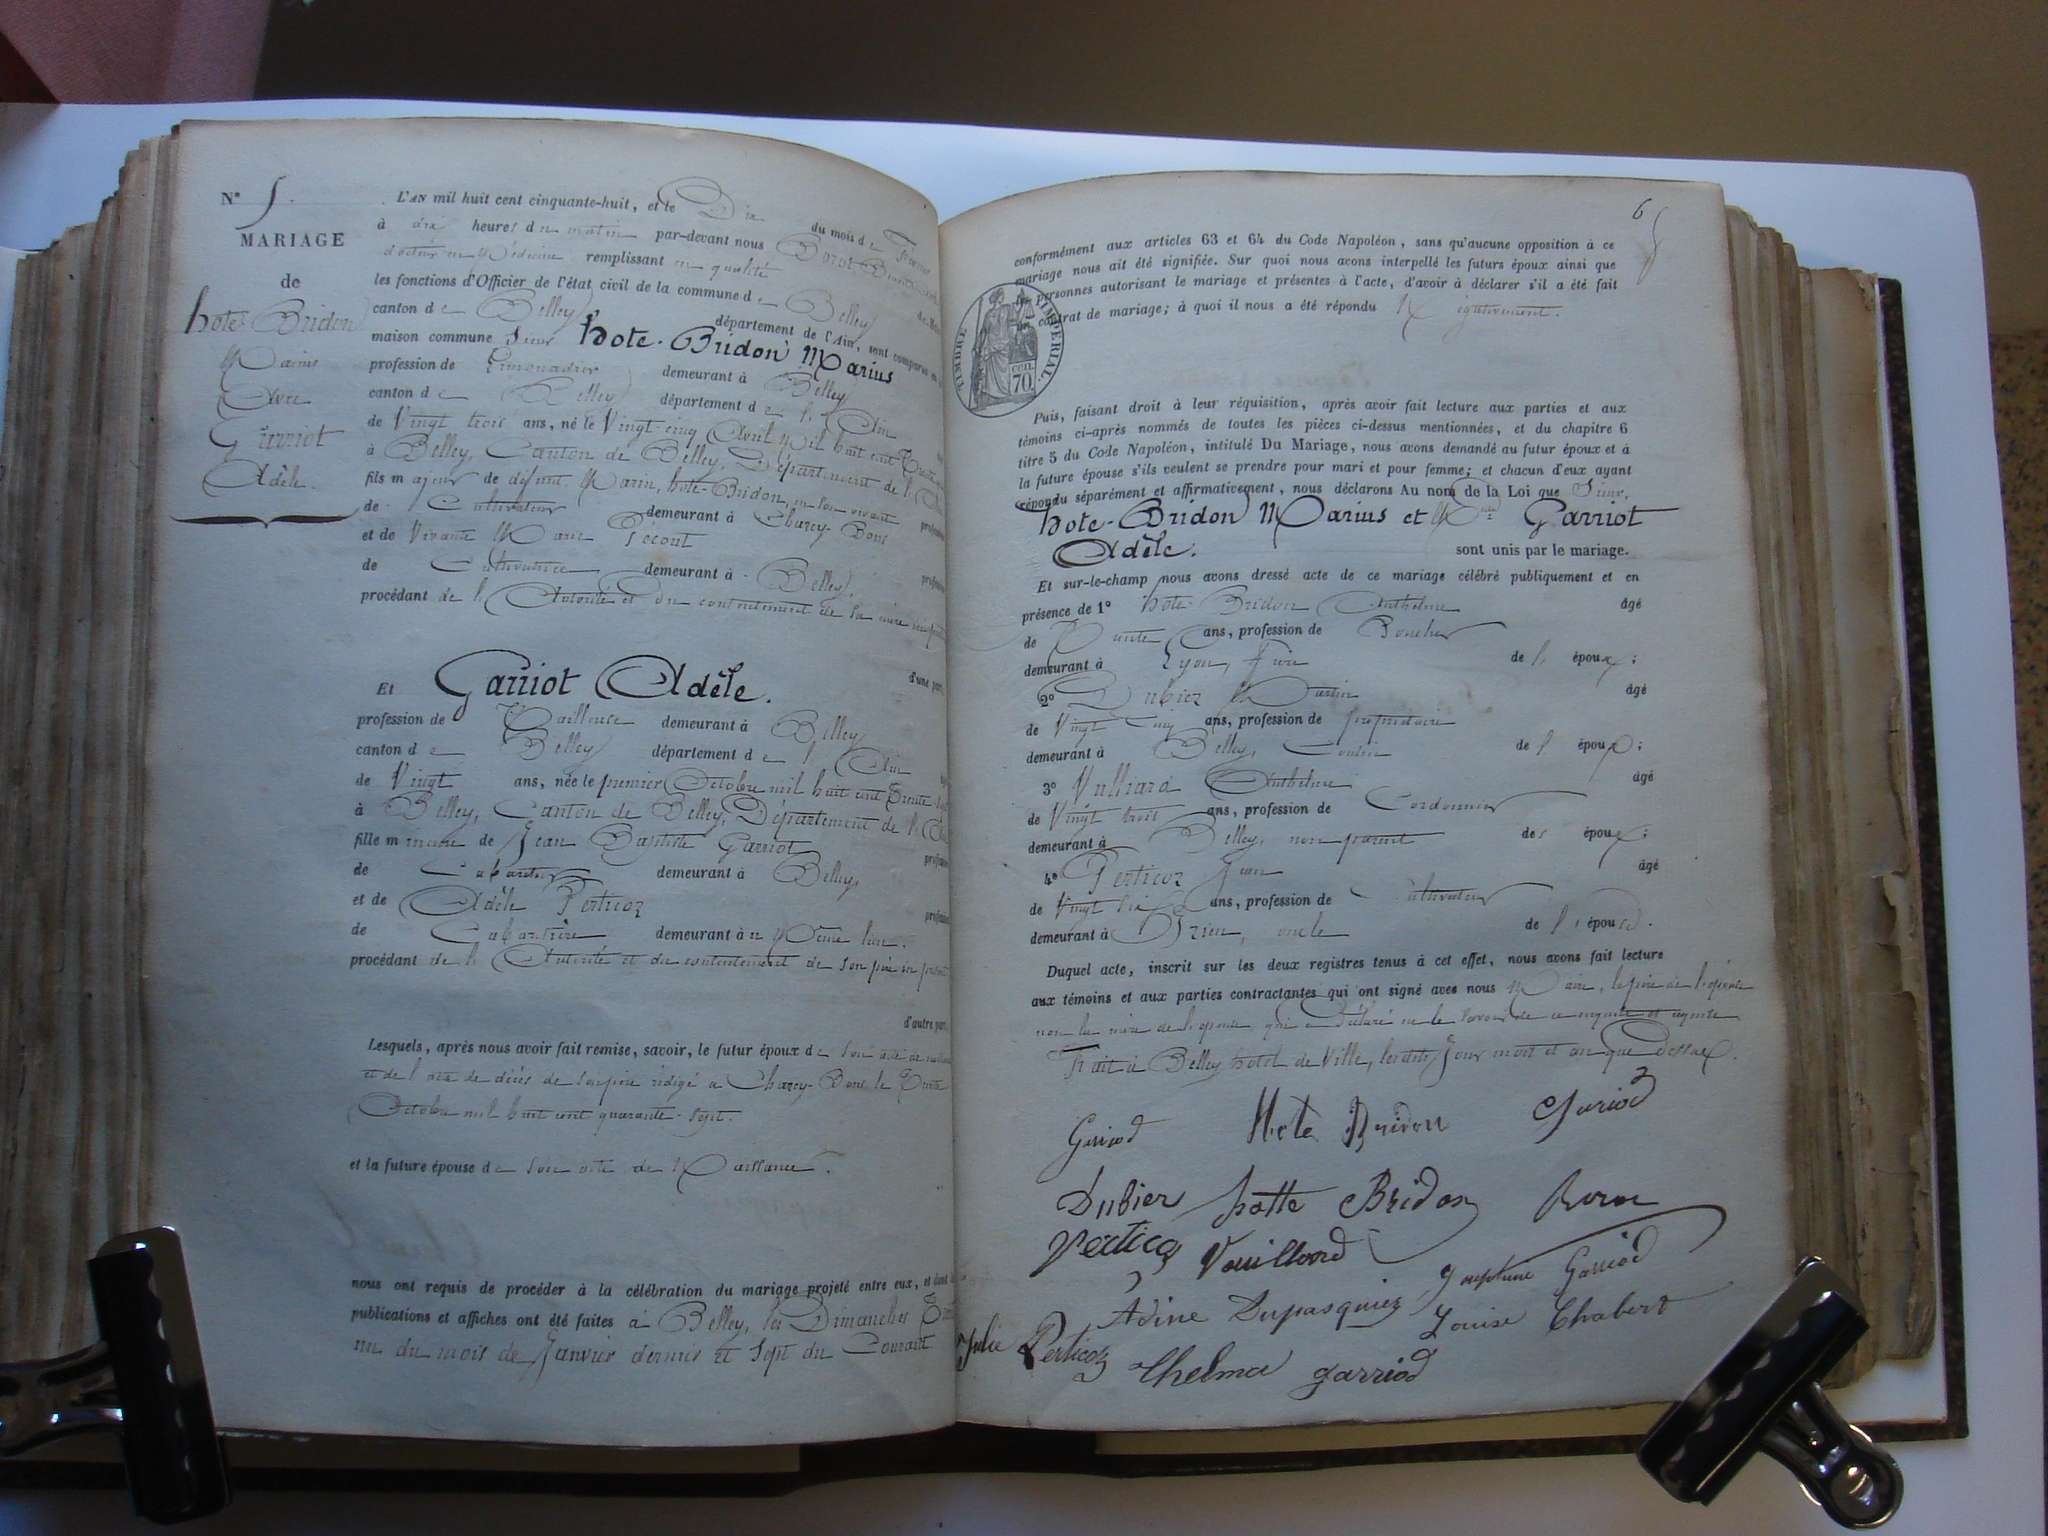 N° 5.
MARIAGE
de
hote-Bridon
Marius
Avec
Garriot
Adèle.
L'AN mil huit cent cinquante-huit, et le Dix du mois de Février
à dix heures du matin par-devant nous
docteur en Médecine remplissant en qualité
les fonctions d'Officier de l'état civil de la commune de Belley
canton de Belley département de l'Ain, sont comparus en
maison commune Sieur hote-Bridon Marius
profession de Limonadier demeurant à Belley
canton de Belley département de l'Ain
de Vingt trois ans, né le Vingt-cinq Avril Mil huit cent Trente
à Belley, Canton de Belley, Département de l'Ain
fils majeur de défunt Marin, hote-Bridon, en son vivant
de Cultivateur demeurant à Charey-Bons
et de Vivante Marie Pécout
de Cultivatrice demeurant à Belley,
procédant de l'Autorité et du consentement de sa mère
d'une part,
Et Garriot Adèle.
profession de Tailleuse demeurant à Belley
canton de Belley département de l'Ain
de Vingt ans, née le premier Octobre mil huit cent Trente
à Belley, Canton de Belley, Département de l'Ain
fille mineure de Jean Baptiste Garriot
de Cabaretier demeurant à Belley,
et de Adèle Perticoz
de Cabaretière demeurant à u Même lieu.
procédant de l'Autorité et du consentement de son père
d'autre part,
Lesquels, après nous avoir fait remise, savoir, le futur époux de Son acte de
et de l'acte de décès de son père rédigé à Charey-Bons le
Octobre mil huit cent quarante-sept.
et la future épouse de son acte de Naissance.
nous ont requis de procéder à la célébration du mariage projeté entre eux, et dont
publications et affiches ont été faites à Belley, les Dimanches Trente
un du mois de Janvier dernier et Sept du Courant
6
conformément aux articles 63 et 64 du Code Napoléon, sans qu'aucune opposition à ce
mariage nous ait été signifiée. Sur quoi nous avons interpellé les futurs époux ainsi que
les personnes autorisant le mariage et présentes à l'acte, d'avoir à déclarer s'il a été fait
un contrat de mariage; à quoi il nous a été répondu Négativement.
TIMBRE IMPÉRIAL.
CEN. 70.
Puis, faisant droit à leur réquisition, après avoir fait lecture aux parties et aux
témoins ci-après nommés de toutes les pièces ci-dessus mentionnées, et du chapitre 6
titre 5 du Code Napoléon, intitulé Du Mariage, nous avons demandé au futur époux et à
la future épouse s'ils veulent se prendre pour mari et pour femme; et chacun d'eux ayant
répondu séparément et affirmativement, nous déclarons Au nom de la Loi que Sieur,
hote-Bridon Marius et Melle Garriot
Adèle. sont unis par le mariage.
Et sur-le-champ nous avons dressé acte de ce mariage célébré publiquement et en
présence de 1° hote-Bridon Anthelme âgé
de Trente ans, profession de Boucher
demeurant à Lyon, frère de l'époux;
2° Dubiez Martin âgé
de Vingt Cinq ans, profession de propriétaire
demeurant à Belley, Cousin de l'époux;
3° Vulliard Anthelme âgé
de Vingt trois ans, profession de Cordonnier
demeurant à Belley, non parent des époux;
4° Perticoz Jean âgé
de Vingt Six ans, profession de Cultivateur
demeurant à Brien, oncle de l'épouse.
Duquel acte, inscrit sur les deux registres tenus à cet effet, nous avons fait lecture
aux témoins et aux parties contractantes qui ont signé avec nous Maire, le père de l'épouse
non la mère de l'époux qui a Déclaré ne le Savoir de ce enquise et requise
Fait à Belley hotel de Ville, lesdits Jour mois et an que Dessus.
Garriod Hote Bridon Garriod
Dubiez hotte Bridon
Perticoz Vuilliard
Josephine Garriod
Adine Dupasquier Louise Chabert
Julie Perticoz Thelma garriod